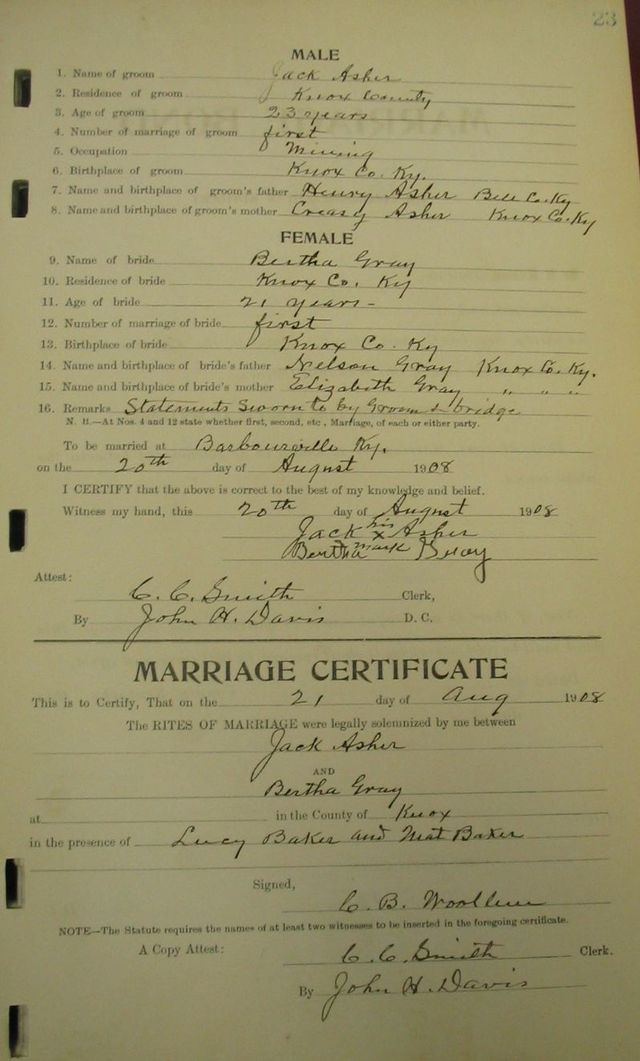 23
MALE
1. Name of groom Jack Asher
2. Residence of groom Knox County
3. Age of groom 23 years
4. Number of marriage of groom first
5. Occupation Mining
6. Birthplace of groom Knox Co. Ky.
7. Name and birthplace of groom's father Henry Asher Bell Co. Ky
8. Name and birthplace of groom's mother Creasy Asher Knox Co. Ky
FEMALE
9. Name of bride Bertha Gray
10. Residence of bride Knox Co. Ky
11. Age of bride 21 years -
12. Number of marriage of bride first
13. Birthplace of bride Knox Co. Ky
14. Name and birthplace of bride's father Nelson Gray Knox Co. Ky.
15. Name and birthplace of bride's mother Elizabeth Gray " " "
16. Remarks Statements Sworn to by Groom & bridge
N. B.—At Nos. 4 and 12 state whether first, second, etc., Marriage, of each or either party.
To be married at Barbourville Ky.
on the 20th day of August 1908
I CERTIFY that the above is correct to the best of my knowledge and belief.
Witness my hand, this 20th day of August 1908
Jack his x Asher
Bertha mark Gray
Attest:
C. C. Smith Clerk,
By John H. Davis D. C.
MARRIAGE CERTIFICATE
This is to Certify, That on the 21 day of Aug 1908
The RITES OF MARRIAGE were legally solemnized by me between
Jack Asher
AND
Bertha Gray
at in the County of Knox
in the presence of Lucy Baker and Mat Baker
Signed,
C. B.
NOTE—The Statute requires the names of at least two witnesses to be inserted in the foregoing certificate.
A Copy Attest: C. C. Smith Clerk.
By John H. Davis